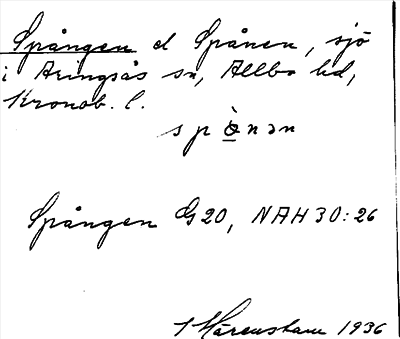 Spången el Spånen, sjö
i Aringsås sn, Allbo hd,
Kronob. l.
spὰnən
Spången G20, NAH30:26
Härenstam 1936